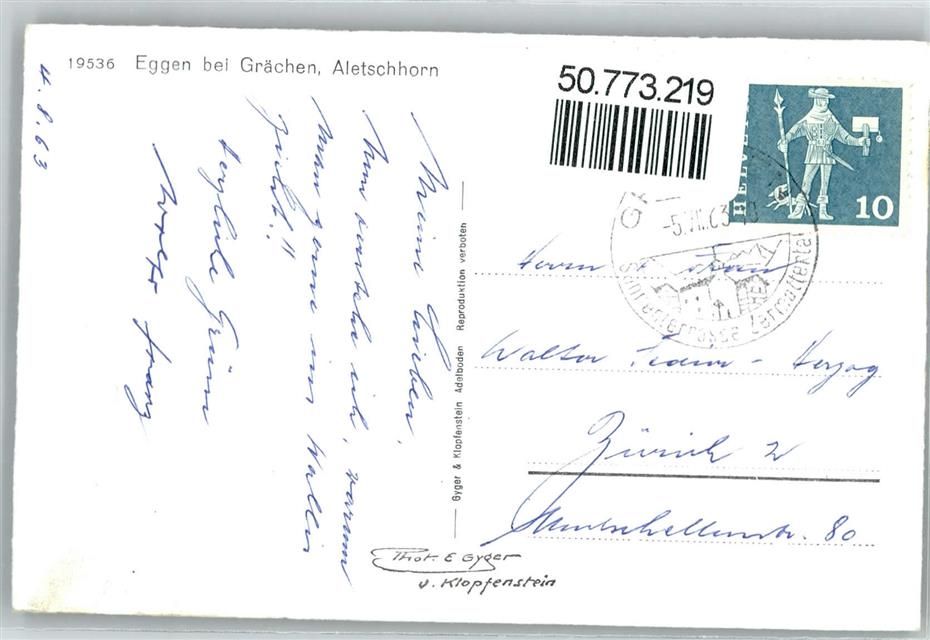 19536 Eggen bei Grächen, Aletschhorn
50.773.219
HELVETIA
10
-5.VIII.63-18
Sonnenterrasse Zermattertal
4.8.63
Meine Lieben,
Nun verstehe ich, warum
man gerne ins Wallis
zieht!!
Herzliche Grüsse
Walter Franz
Gyger & Klopfenstein Adelboden Reproduktion verboten
Herrn & Frau
Walter - Herzog
Zürich 2
Mutschellenstr. 80
Phot. E Gyger
u. Klopfenstein